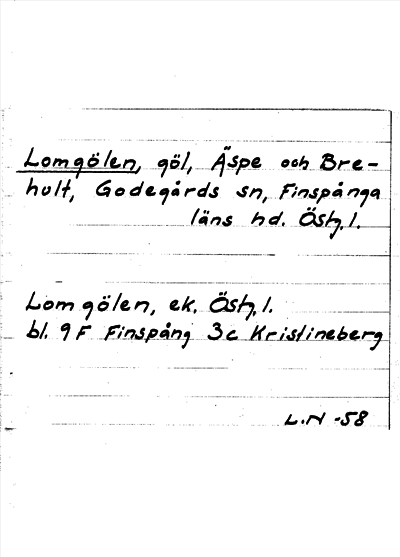 Lomgölen, göl, Äspe och Bre-
hult, Godegårds sn, Finspånga
läns hd. Östg. l.
Lomgölen, ek. Östg. l.
bl. 9F Finspång 3c Kristineberg
L.N -58